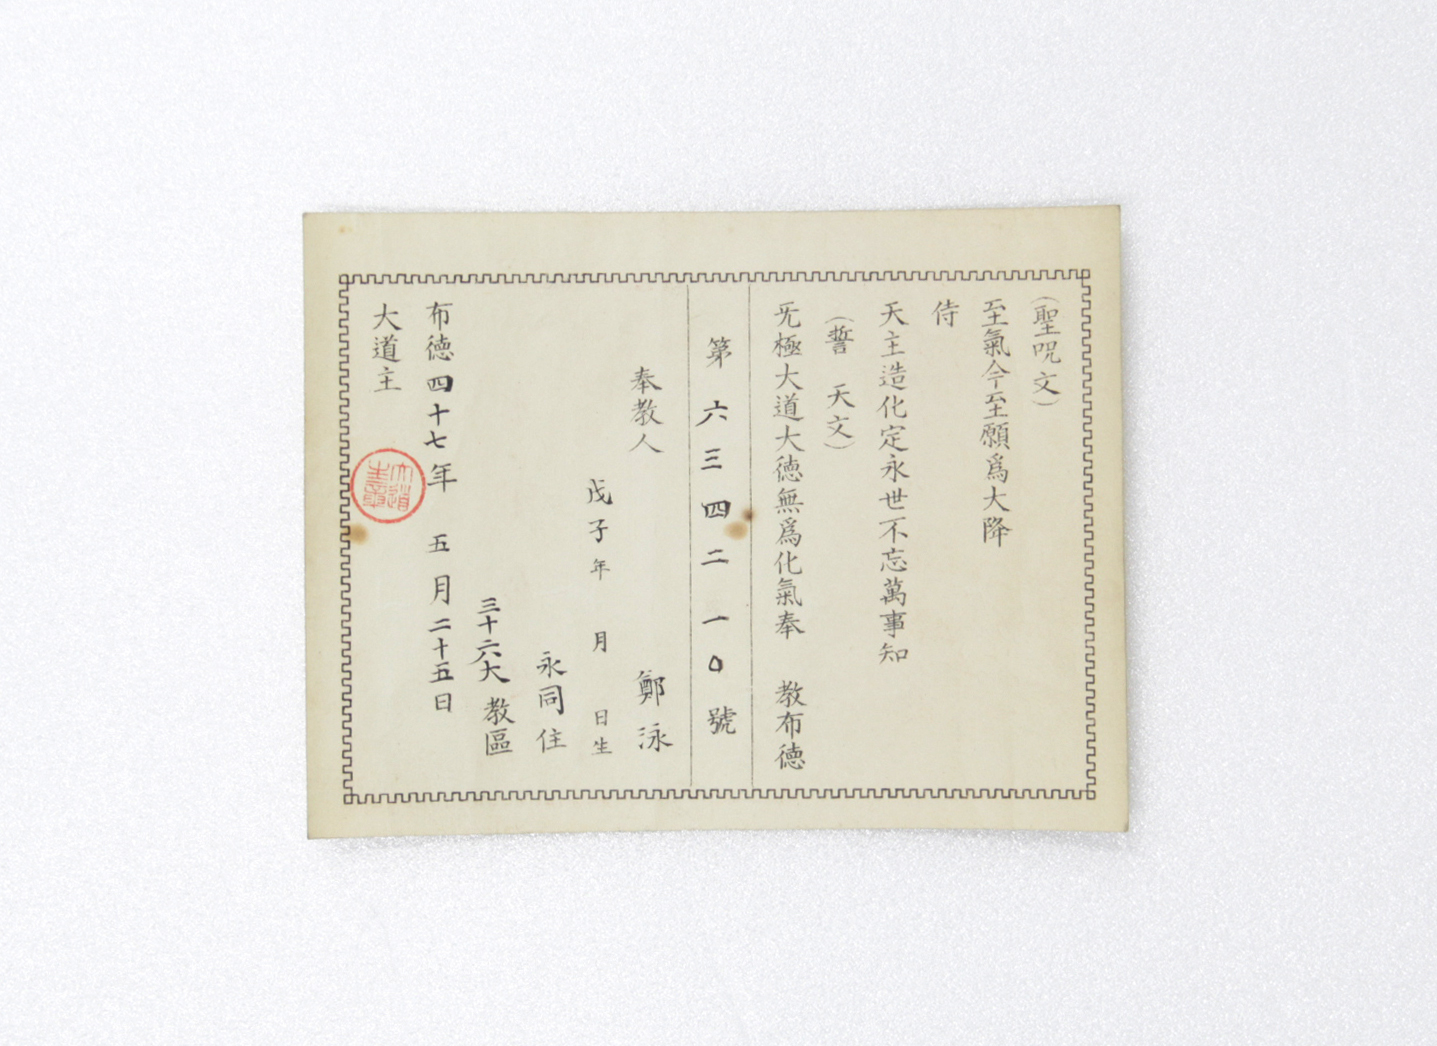 (聖呪文)
至氣今至願爲大降
侍
天主造化定永世不忘萬事知
(誓 天文)
旡極大道大德無爲化氣奉 教布德
第六三四二一〇號
奉教人 鄭泳
戊子年 月 日生
永同住
三十六大教區
布德四十七年 五月二十五日
大道主
大道主章